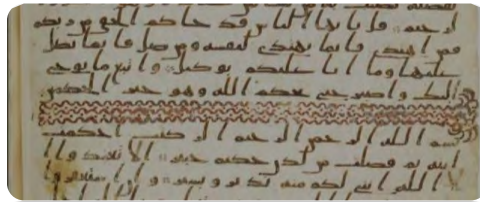 الرحيم قل يايها الناس قد جاكم الحق من ربكم
فمن اهتدى فانما يهتدي لنفسه ومن ضل فانما يضل
عليها وما انا عليكم بوكيل واتبع ما يوحى
اليك واصبر حتى يحكم الله وهو خير الحكمين
بسم الله الرحمن الرحيم الر كتب احكمت
ايته ثم فصلت من لدن حكيم خبير الا تعبدوا ا
لا الله انني لكم منه نذير وبشير وان استغفروا